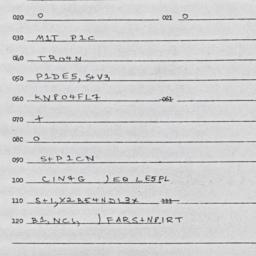 020 0 021 0
030 M1T P1C
040 TR04N
050 P1DE5, S+V3
060 KN804FL7 061
070 +
080 0
090 S+P1CN
100 C1N4G )EQ LE5PL
110 S+1,Y2BE4ND13X 111
120 B1,NCL, )FARS+N8.1RT